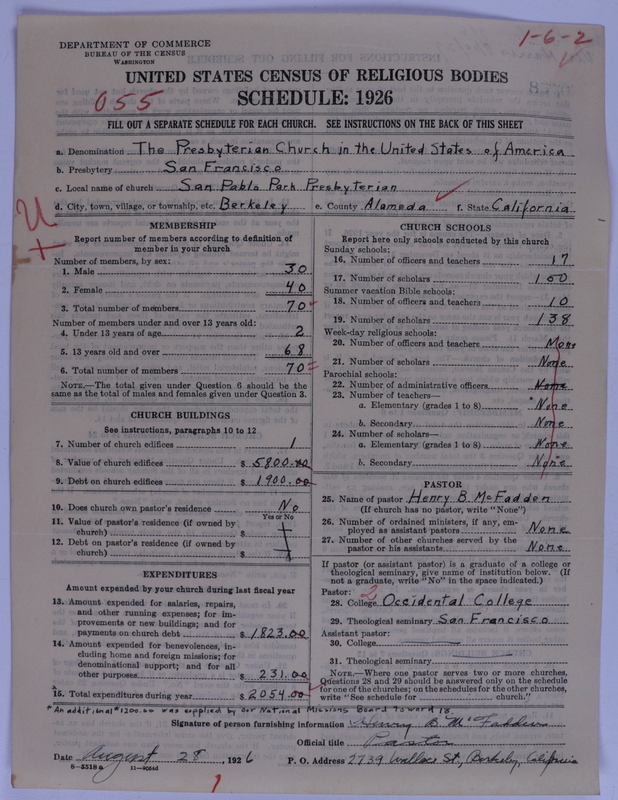 DEPARTMENT OF COMMERCE
BUREAU OF THE CENSUS
WASHINGTON
1-6-2
UNITED STATES CENSUS OF RELIGIOUS BODIES
055
SCHEDULE: 1926
FILL OUT A SEPARATE SCHEDULE FOR EACH CHURCH. SEE INSTRUCTIONS ON THE BACK OF THIS SHEET
a. Denomination The Presbyterian Church in the United States of America
b. Presbytery San Francisco
c. Local name of church San Pablo Park Presbyterian
d. City, town, village, or township, etc. Berkeley e. County Alameda f. State California
MEMBERSHIP
Report number of members according to definition of
member in your church
Number of members, by sex:
1. Male 30
2. Female 40
3. Total number of members 70
Number of members under and over 13 years old:
4. Under 13 years of age 2
5. 13 years old and over 68
6. Total number of members 70
NOTE.—The total given under Question 6 should be
the same as the total of males and females given under Question 3.
CHURCH BUILDINGS
See instructions, paragraphs 10 to 12
7. Number of church edifices 1
8. Value of church edifices $ 5800.00
9. Debt on church edifices $ 1900.00
10. Does church own pastor's residence? No
Yes or No
11. Value of pastor's residence (if owned by
church) $
12. Debt on pastor's residence (if owned by
church) $
EXPENDITURES
Amount expended by your church during last fiscal year
13. Amount expended for salaries, repairs,
and other running expenses; for im-
provements or new buildings; and for
payments on church debt $ 1823.00
14. Amount expended for benevolences, in-
cluding home and foreign missions; for
denominational support; and for all
other purposes $ 231.00
15. Total expenditures during year $ 2054.00
CHURCH SCHOOLS
Report here only schools conducted by this church
Sunday schools:
16. Number of officers and teachers 17
17. Number of scholars 150
Summer vacation Bible schools:
18. Number of officers and teachers 10
19. Number of scholars 138
Week-day religious schools:
20. Number of officers and teachers None
21. Number of scholars None
Parochial schools:
22. Number of administrative officers None
23. Number of teachers—
a. Elementary (grades 1 to 8) None
b. Secondary None
24. Number of scholars—
a. Elementary (grades 1 to 8) None
b. Secondary None
PASTOR
25. Name of pastor Henry B. McFadden
(If church has no pastor, write "None")
26. Number of ordained ministers, if any, em-
ployed as assistant pastors None
27. Number of other churches served by the
pastor or his assistants None
If pastor (or assistant pastor) is a graduate of a college or
theological seminary, give name of institution below. (If
not a graduate, write "No" in the space indicated.)
Pastor: 2
28. College Occidental College
29. Theological seminary San Francisco
Assistant pastor:
30. College
31. Theological seminary
NOTE.—Where one pastor serves two or more churches,
Questions 28 and 29 should be answered only on the schedule
for one of the churches; on the schedules for the other churches,
write "See schedule for church."
* An additional $1200.00 was supplied by our National Missions Board toward 13.
Signature of person furnishing information Henry B. McFadden
Official title Pastor
Date August 28, 1926 P. O. Address 2739 Wallace St, Berkeley, California